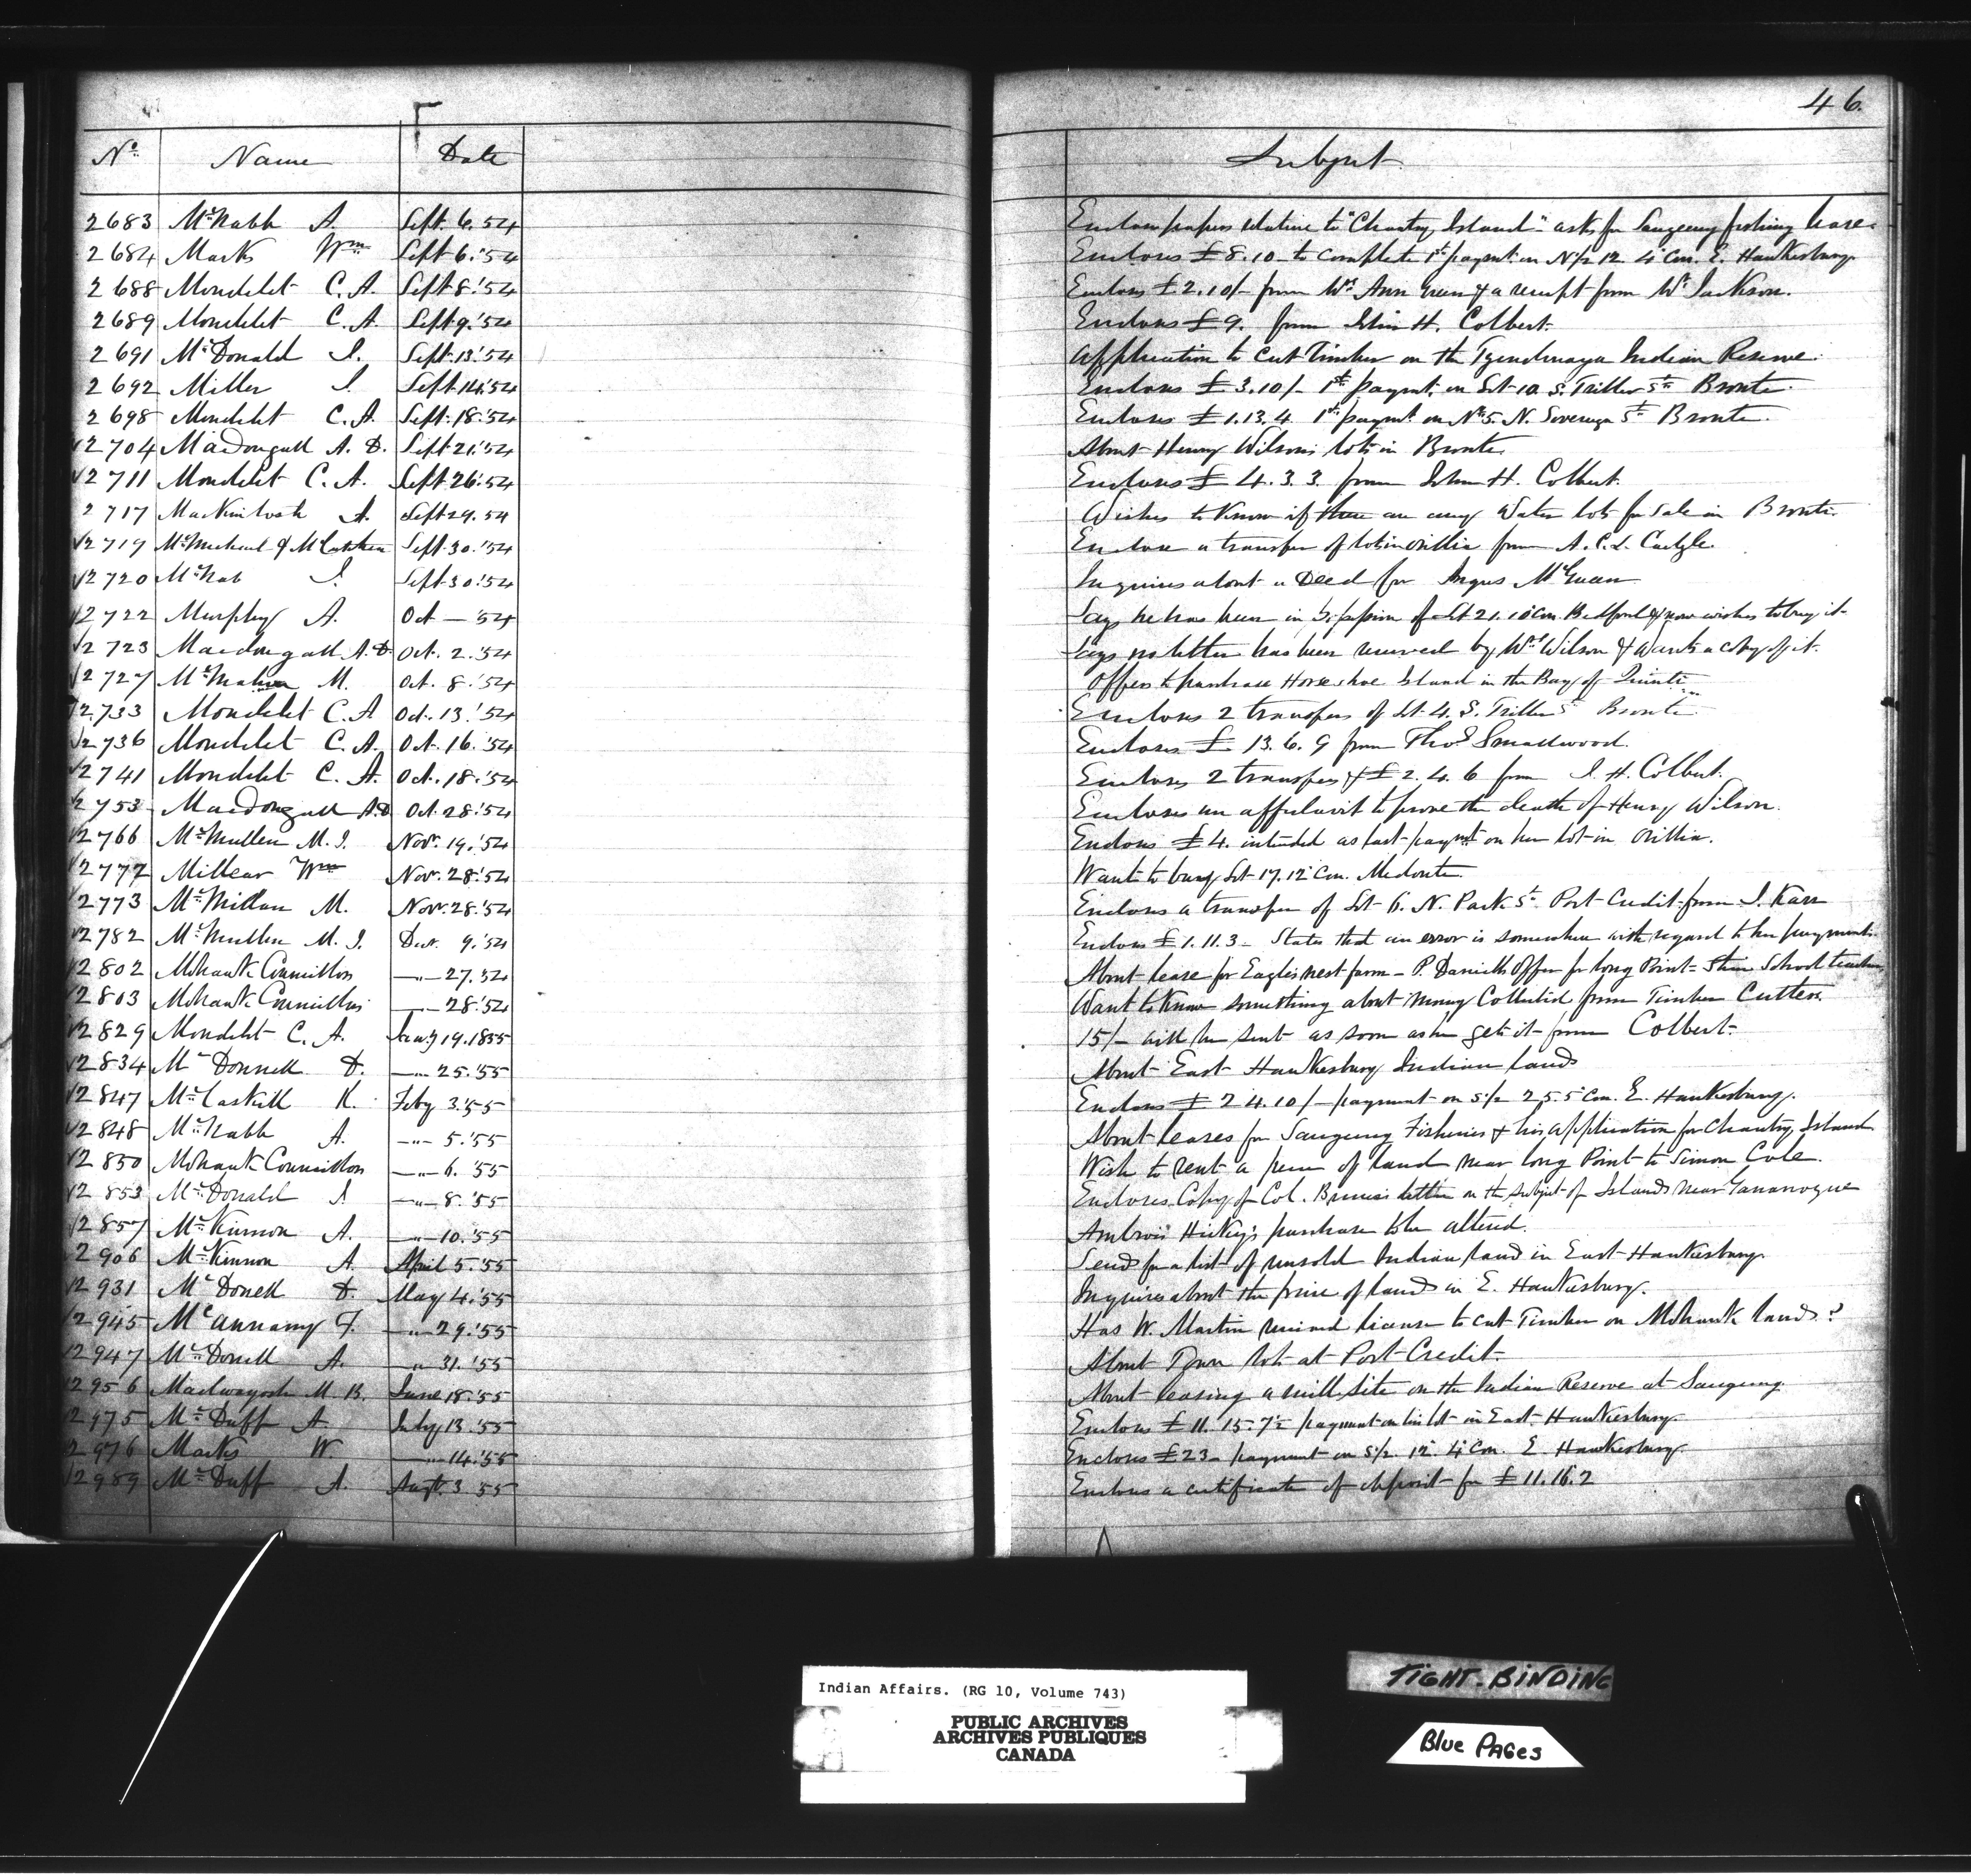 46.
No. Name Date Subject
2683 McNabb A. Sept. 6. 54 Encloses papers relative to "Chantry Island" asks for Saugeeng fishing lease.
2684 Marks Wm Sept. 6. '54 Encloses £8.10 to complete 1st paymt. on N½ 12. 4 Con. E. Hawkesbury.
2688 Mondelet C. A. Sept 8. '54 Encloses £2.10/- from Mrs Ann Green & a receipt from Mr Jackson.
2689 Mondelet C. A. Sept. 9. '54 Encloses £9. from John H. Colbert.
2691 McDonald J. Sept. 13. '54 Application to cut timber on the Tyendinaga Indian Reserve.
2692 Miller J. Sept. 14. '54 Encloses £3.10/- 1st paymt. on Lot 10. S. Triller St. Bronte.
2698 Mondelet C. A. Sept. 18. '54 Encloses £1.13.4 1st paymt. on No 5. N. Sovereign St. Bronte.
√2704 MacDougall A. D. Sept. 21. '54 About Henry Wilson's lots in Bronte.
√2711 Mondelet C. A. Sept. 26. '54 Encloses £4.3.3. from John H. Colbert.
2717 MacKintosh A. Sept 29. 54 Wishes to Know if there are any Water lots for Sale in Bronte.
√2719 McMicheal & McCutchen Sept. 30. '54 Enclose a transfer of lot in Orillia from A. C. L. Carlyle.
√2720 McNab J. Sept 30. '54 Inquires about a Deed for Angus McGuean
√2722 Murphy A. Oct — '54 Says he has been in possession of Lot 21. 10 Con. Bedford & now wishes to buy it.
√2723 Macdougall A. D. Oct. 2. '54 Says no letter has been received by Mrs Wilson & Wants a copy of it.
√2727 McMahon M. Oct. 8. '54 Offers to purchase Horse shoe Island in the Bay of Quinte
√2733 Mondelet C. A. Oct. 13. '54 Encloses 2 transfers of Lot 4. S. Triller St. Bronte.
√2736 Mondelet C. A. Oct. 16. '54 Encloses £13.6.9 from Thos Smallwood.
√2741 Mondelet C. A. Oct. 18. '54 Encloses 2 transfers & £2.4.6 from J. H. Colbert.
√2753 Macdougall A. D. Oct. 28. '54 Encloses an affidavit to prove the death of Henry Wilson.
√2766 McMullen M. J. Nov. 19. '54 Encloses £4. intended as last paymt on her lot in Orillia.
√2772 Millear Wm Nov. 28. '54 Wants to buy Lot 17. 12 Con. Medonte.
√2773 McMillan M. Nov. 28. '54 Encloses a transfer of Lot 6. N. Park St. Port Credit from J. Karr
√2782 McMullen M. J. Dec. 9. '54 Encloses £1.11.3 - States that an error is somewhere with regard to her payments.
√2802 Mohawk Councillors —"— 27. '54 About lease for Eagles nest farm - P. Daniells Offer for long Point = School teacher
√2803 Mohawk Councillors —"— 28. '54 Want to Know something about money Collected from Timber Cutters.
√2829 Mondelet C. A. Jany 19. 1855 15/- will be sent as soon as he gets it from Colbert.
√2834 McDonnell D. —"— 25. '55 About East Hawkesbury Indian lands
√2847 McCaskill K. Feby 3. '55 Encloses £24.10/- payment on S½ 25 5 Con. E. Hawkesbury.
√2848 McNabb A. —"— 5. '55 About leases for Saugeeng Fisheries & his application for Chantry Island
√2850 Mohawk Councillors —"— 6. '55 Wish to rent a piece of land near long Point to Simon Cole.
√2853 McDonald J. —"— 8. '55 Encloses Copy of Col. Bruce's letter on the subject of Islands near Gananoque
√2857 McKinnon A. —"— 10. '55 Ambrois Hickey's purchase to be altered.
√2906 McKinnon A. April 5. '55 Sends for a list of unsold Indian land in East Hawkesbury.
√2931 McDonell D. May 4. '55 Inquires about the price of lands in E. Hawkesbury.
√2945 McAnnany F. —"— 29. '55 Has W. Martin received license to cut Timber on Mohawk lands?
√2947 McDonell A. —"— 31. '55 About Town lots at Port Credit.
√2956 M. K. June 18. '55 About leasing a mill site on the Indian Reserve at Saugeeng
√2975 McDuff A. July 13. '55 Encloses £11.15.7½ payment on his lot in East Hawkesbury.
√2976 Marks W. —"— 14. '55 Encloses £23 - payment on S½ 12. 4 Con. E. Hawkesbury.
√2989 McDuff A. Augt. 3 55 Encloses a certificate of deposit for £11.16.2
Indian Affairs. (RG 10, Volume 743)
PUBLIC ARCHIVES
ARCHIVES PUBLIQUES
CANADA
TIGHT-BINDING
Blue PAGes